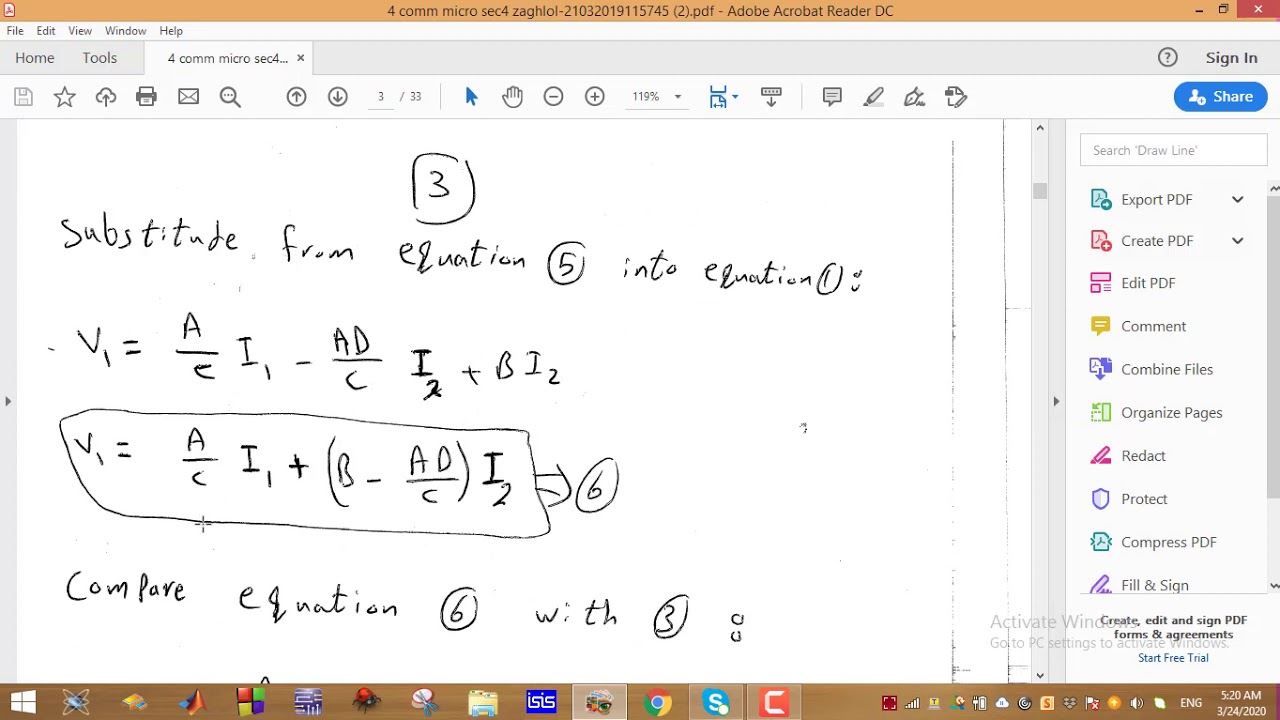 4 comm micro sec4 zaghlol-21032019115745 (2).pdf - Adobe Acrobat Reader DC
File Edit View Window Help
Home Tools 4 comm micro sec4... × Sign In
3 / 33 119% Share
Search 'Draw Line'
Export PDF
Create PDF
Edit PDF
Comment
Combine Files
Organize Pages
Redact
Protect
Compress PDF
Fill & Sign
Create, edit and sign PDF
forms & agreements
Start Free Trial
Activate Windows
Go to PC settings to activate Windows.
3
Substitude from equation 5 into equation 1 :
V1 = A/C I1 - AD/C I2 + B I2
V1 = A/C I1 + (B - AD/C) I2 ⇒ 6
Compare equation 6 with 3 :
isis
ENG
5:20 AM
3/24/2020